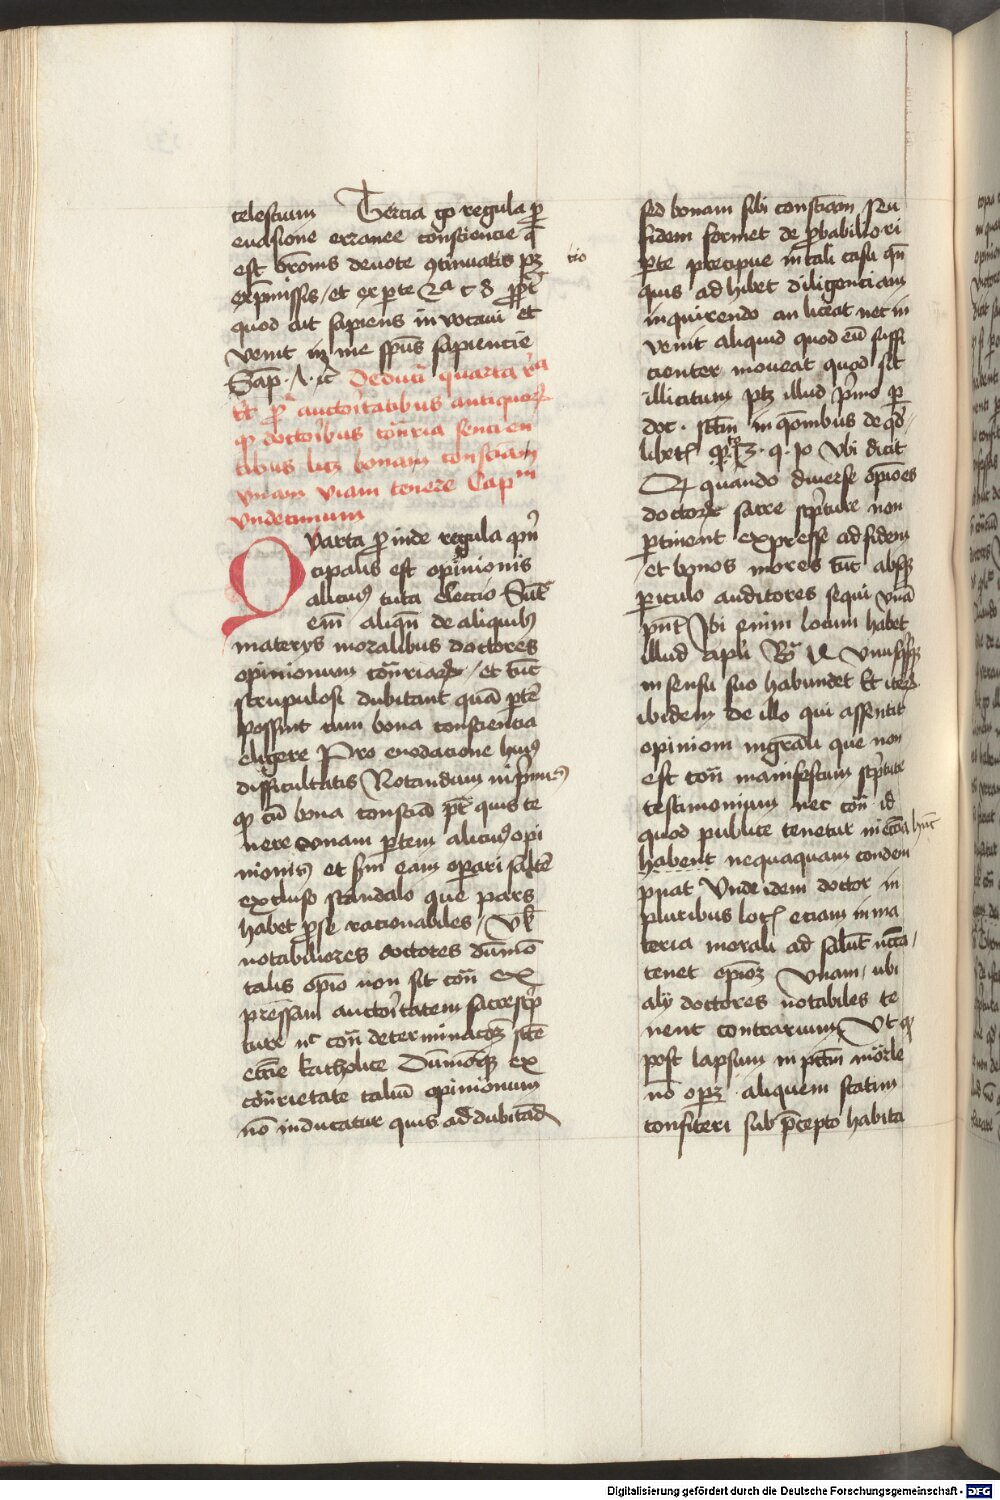 telestium Tercia g̊ regula ꝓ
euasione erranee consciencie q̄
est or̄onis deuote ꝯtinuatio pꝫ
ex p̄missis / et ex parte 2ᵃ c 8 ꝓpt̄
quod ait sapiens inuocaui et
venit in me sp̄us sapiencie
Sap̄ . 7 . ic̄ Deduci quarta r̄a
ꝓ auctoritatibus antiquoꝝ
ꝙ doctoribus cōtraria sencien
tibus licꝫ bonam consciām
vnam viam tenere Capᵐ
vndecimum
Quarta proinde regula prin
cipalis est opinionis
alicuiꝰ tuta eleccio Sunt
em̄ aliqn̄ de aliquibꝰ
materijs moralibus doctores
opinionum cōtrariaꝝ / et tūc
scrupulosi dubitant quā ꝑtē
possint cum bona consciencia
eligere Pro enodacione huiꝰ
difficultatis Notandum in primis
ꝙ cū bona consciā pt̄ quis te
nere vnam ꝑtem alicuiꝰ opi
nionis et sm̄ eam operari saltē
excluso scandalo que pars
habet ꝓ se racionabiles / Vl̄
notabiliores doctores dūmō
talis opīo non sit cōn̄ ex
pressam auctoritatem sacre scrip
ture nͨ cōn̄ determinacōꝫ scē
eccīe katholice Dūmōꝙ ex
cōtrarietate taliū opinionum
nō inducatur quis ad dubitand
tio
sed bonam sibi consciām seu
fidem formet de probabiliori
ꝑte precipue in tali casu qn̄
quis adhibet diligenciam
inquirendo an liceat nec in
venit aliquid quod eū suffi
cienter moueat quod sit
illicitum ptꝫ illud primo ꝑ
doc . sc̄tm in qōnibus de qd̄
libetꝭ . q . 10 Vbi dicit
Qꝫ quando diuerse opīones
doctorum sacre scripture non
ꝑtinent expresse ad fidem
/ et bonos mores tūc absꝙ
ꝑiculo auditores sequi vnā
pn̄t Ibi enim locum habet
illud apl̄i Ro 14 Vnusq̄sꝙ
in sensu suo habundet Et iteꝝ
ibidem de illo qui assentit
opinioni mgrāli que non
est cōn̄ manifestum scripture
testimonium nec cōn̄ id
quod publice tenetur in ecc̄ia hūt
habent nequaquam condem
pnat Vnde idem doctor in
pluribus locꝭ eciam in ma
teria morali ad salutem nccͣia /
tenet opīoꝫ vnam / ubi
alij doctores notabiles te
nent contrarium Vt ꝙ
post lapsum in pcc̄tm mōrle
nō opꝫ aliquem statim
confiteri sub p̄cepto habita
Digitalisierung gefördert durch die Deutsche Forschungsgemeinschaft - DFG